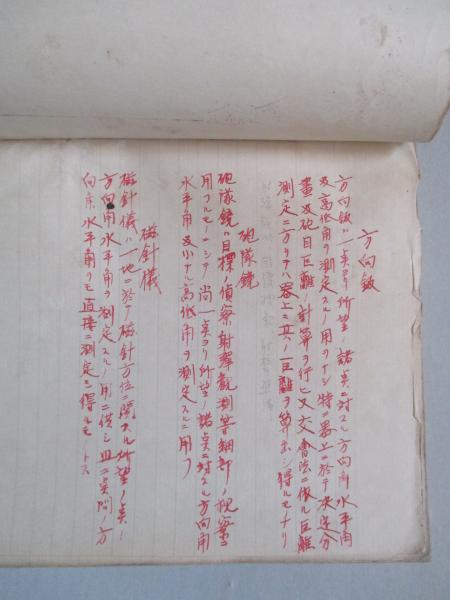 方向鈑
方向鈑ハ一点ヨリ所望ノ諸点ニ対スル方向角水平角
及高低角ヲ測定スルノ用ヲナシ特ニ器上ニ於テ決定分
畫及砲目巨離ノ計算ヲ行ヒ又交會法ニ依ル巨離
測定ニ方リテハ器上ニ其ノ巨離ヲ算出シ得ルモノナリ
砲隊鏡
砲隊鏡ハ目標ノ偵察射撃観測等細部ノ視察ニ
用フルモノニシテ尚一点ヨリ所望ノ諸点ニ対スル方向角
水平角及小ナル高低角ヲ測定スルニ用フ
磁針儀
磁針儀ハ一地ニ於テ磁針方位ニ関スル所望ノ点ノ
方向角水平角ヲ測定スルノ用ニ供シ且二点間ノ方
向角水平角ヲモ直接ニ測定シ得ルモノトス